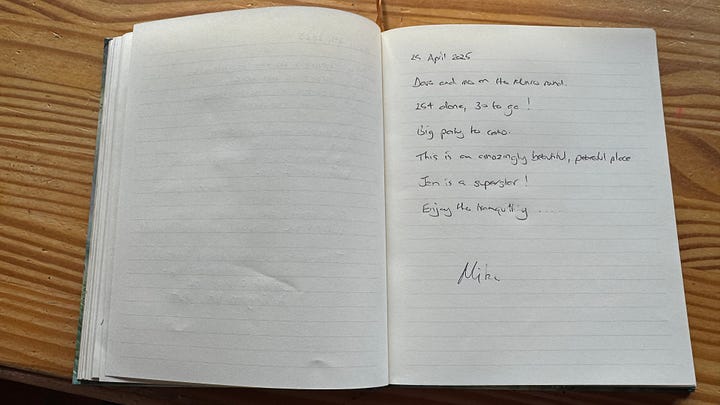 April 2025
Dave and me on the Munro round.
done, to go!
Big party to come.
This is an amazingly beautiful, peaceful place
Jen is a superstar!
Enjoy the tranquility ....
Mike